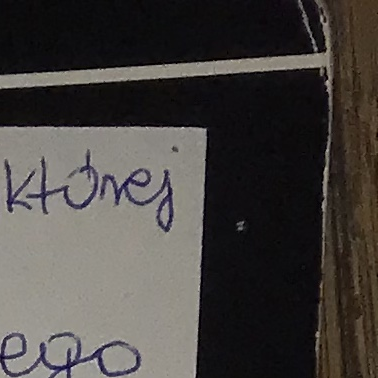 której
ego